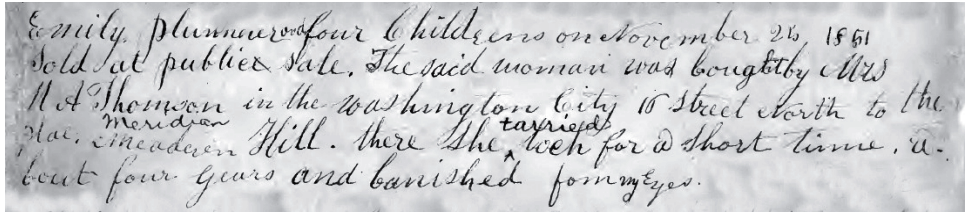 Emily plummer and four Childeens on November 25 1851
Sold at publick Sale. The said woman was bought by Mrs
M A Thomson in the washington City 15 Street North to the
Meridian tarried
Meaderen Hill. there She ^ for a Short time. a-
bout four years and banished fom my Eyes.